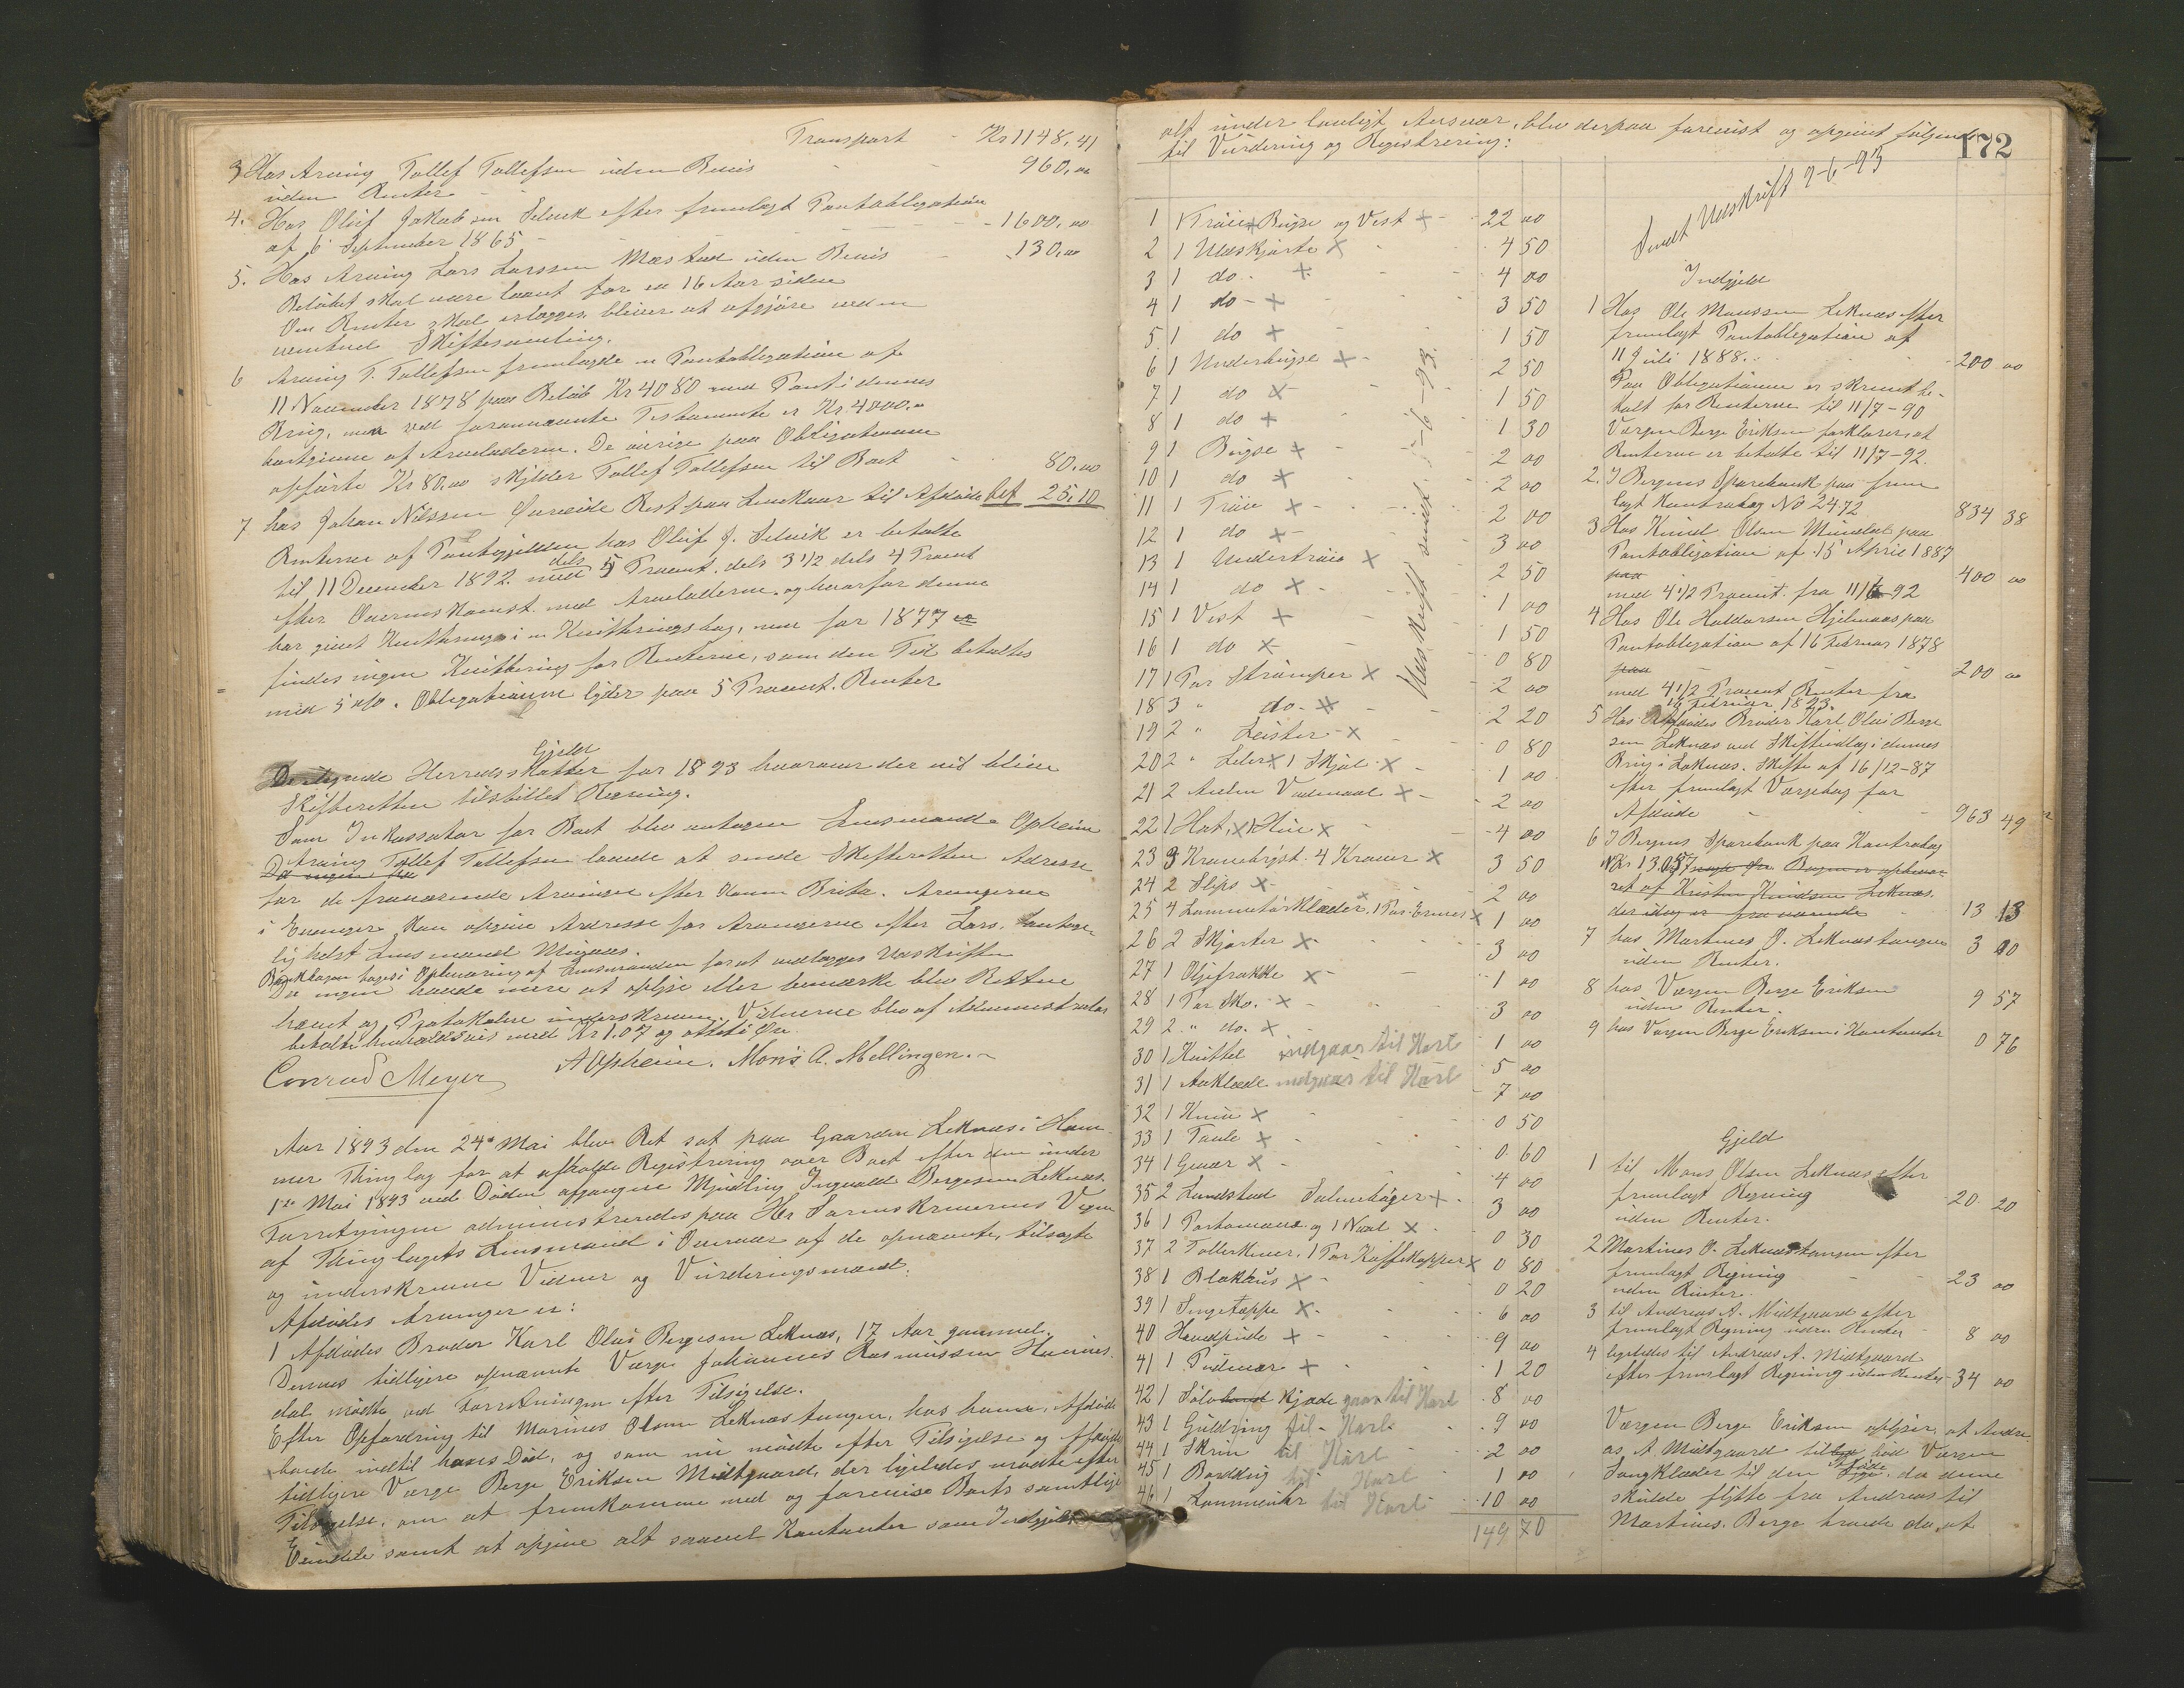 Transport - Kr 1148,41
3 Hos Arving Tollef Tollefsen uden Bevis - - 960,00
uden Renter
4. Hos Oluf Jakobsen Selvik efter fremlagt Pantobligation
af 6 September 1865 - - - - 1600,00
5. Hos Arving Lars Larssen Mæstad uden Bevis - 130,00
Beløbet skal være laant for en 16 Aar siden
Om Renter skal erlægges bliver at afgjøre under
eventuel Skiftesamling.
6 Arving T. Tollefsen fremlagde en Pantobligation af
11 November 1878 paa Beløb Kr 4080 med Pant i dennes
Brug, men ved forannævnte Testamente er Kr. 4000,00
bortgivne af Arveladeren. De øvrige paa Obligationen
opførte Kr 80,00 skylder Tollef Tollefsen til Boet - 80,00
7 hos Johan Nilssen Rest paa Livkaar til Afdøde bet 25,10
Renterne af Pantegjelden hos Oluf J. Selvik er betalte
til 11 December 1892 med dels 5 Procent, dels 3 1/2 dels 4 Procent
efter Overenskomst med Arveladeren, og hvorfor denne
har givet Kvittering i en Kvitteringsbog, men for 1877 er
findes ingen Kvittering for Renterne, som den Tid betaltes
med 5 %. Obligationen lyder paa 5 Procent Renter
Gjeld
Herredsskatter for 1893 hvorover der vil blive
Skifteretten tilstillet Regning.
Som Inkassator for Boet blev antagen Lensmand Opheim
Arving Tollef Tollefsen lovede at sende Skifteretten Adresse
Da ingen ha
for de fraværende Arvinger efter Konen Brita. Arvingerne
i Evanger kan opgive Adresse for Arvingerne efter Lars,
helst Lensmand
Opbevaring af Lensmanden for at vedlægges Udskriften
Da ingen havde mere at oplyse eller bemærke blev Retten
hævet og Protokollen underskreven. Vidnerne blev af Administrator
betalte henholdsvis med Kr 1.07 og otteti Øre.
Conrad Meyer AOpheim. Mons A. Mellingen.
Aar 1893 den 24de Mai blev Ret sat paa Gaarden Leknes i Ham-
mer Thinglag for at afholde Registrering over Boet efter den under
1ste Mai 1893 ved Døden afgangne Myndling Ingvald Bergesen Leknes.
Forretningen administreredes paa Hr Sorenskriverens Vegne
af Thinglagets Lensmand i Overvær af de opnævnte, tilsagte
og underskrevne Vidner og Vurderingsmænd.
Afdødes Arvinger er:
1 Afdødes Broder Karl Olai Bergesen Leknes, 17 Aar gammel.
Dennes tidligere opnævnte Værge Johannes Rasmussen
dal mødte ved Forretningen efter Tilsigelse.
Efter Opfordring til Martines Olsen Leknestangen, hos hvem Afdøde
havde indtil hans Død, og som nu mødte efter Tilsigelse og Afdødes
tidligere Værge Berge Eriksen Midtgaard, der ligeledes mødte efter
Tilsigelse, om at fremkomme med og forevise Boets samtlige
Eiendele samt at opgive alt saavel Kontanter som Indgjeld
172
alt under lovligt Ansvar, blev derpaa forevist og opgivet følgende
til Vurdering og Registrering:
Udskrift sendt 9-6-93.
1 1 Trøie Buxe og Vest 22 00
2 1 Uldskjorte 4 50
3 1 do. 4 00
4 1 do 3 50
5 1 do 1 50
6 1 Underbuxe 2 50
7 1 do 1 50
8 1 do 1 30
9 1 Buxe 2 00
10 1 do 2 00
11 1 Trøie 2 00
12 1 do 3 00
13 1 Undertrøie 2 50
14 1 do 1 00
15 1 Vest 1 50
16 1 do 0 80
17 1 Par Strømper 2 00
18 3 " do. 2 20
19 2 " Leister 0 80
20 2 " Seler 1 Skjal 1 00
21 2 Alen Vadmaal 2 00
22 1 Hat, 1 Hue 4 00
23 3 Kravebryst. 4 Kraver 3 50
24 2 Slips 2 00
25 4 Lommetørklæder. 1 Par Ermer 1 00
26 2 Skjorter 3 00
27 1 Oljefrakke 1 00
28 1 Par Sko. 3 00
29 2 " do. 1 00
30 1 Kuffel indgaar til Karl 5 00
31 1 Aaklæde indgaar til Karl 7 00
32 1 Kniv 0 50
33 1 Tavle 0 60
34 1 Gevær 4 00
35 2 Landstad Salmebøger 3 00
36 1 Portomone og 1 Naal 0 30
37 2 Tallerkener, 1 Par Kaffekopper 0 80
38 1 Blækhus 0 20
39 1 Sengetæppe 6 00
40 Hovedpude 9 00
41 1 Pudevar 1 20
42 1 Sølvkjæde gaar til Karl 8 00
43 1 Guldring til - Karl 9 00
44 1 Skrin til Karl 2 00
45 1 til Karl 1 00
46 1 Lommeuhr til Karl 10 00
149 70
Sendt Udskrift 9-6-93
Indgjeld
1 Hos Ole Monssen Leknes efter
fremlagt Pantobligation af
11 Juli 1888. - 200 00
Paa Obligationen er skrevet be-
talt for Renterne til 11/7-90
Værgen Berge Eriksen forklarer, at
Renterne er betalte til 11/7-92.
2. I Bergens Sparebank paa frem
lagt Kontrabog No 2472 834 38
3 Hos Knud Olsen Mundal paa
Pantobligation af 15 April 1887
paa 400 00
med 4 1/2 Procent. fra 11/6-92
4 Hos Ole Haldorsen Hjelmaas paa
Pantobligation af 16 Februar 1878
paa - 200 00
med 4 1/2 Procent Renter fra
16 Februar 1893.
5 Hos Afdødes Broder Karl Olai Berge
sen Leknes ved Skifteudlæg i dennes
Brug i Leknes. Skifte af 16/12-87
efter fremlagt Værgebog for
Afdøde - - 963 49
6 I Bergens Sparebank paa Kontrabog
No 13057 Bogen er opbeva-
ret af Kristen Knudsen Leknes.
der idag er fraværende 13 13
7 hos Martines O. Leknestangen 3 00
uden Renter.
8 hos Værgen Berge Eriksen
uden Renter. 9 57
9 hos Værgen Berge Eriksen i Kontanter 0 76
Gjeld
1 til Mons Olsen Leknes efter
fremlagt Regning 20 20
uden Renter.
2 Martines O. Leknestangen efter
fremlagt Regning - - 23 00
uden Renter.
3 til Andreas A. Midtgaard efter
fremlagt Regning uden Renter 8 00
4 ligeledes til Andreas A. Midtgaard
efter fremlagt Regning uden Renter 34 00
Værgen Berge Eriksen oplyser, at Andre-
as A. Midtgaard tilbød Værgen
Sengklæder til den Afdøde, da denne
skulde flytte fra Andreas til
Martines. Berge troede da, at